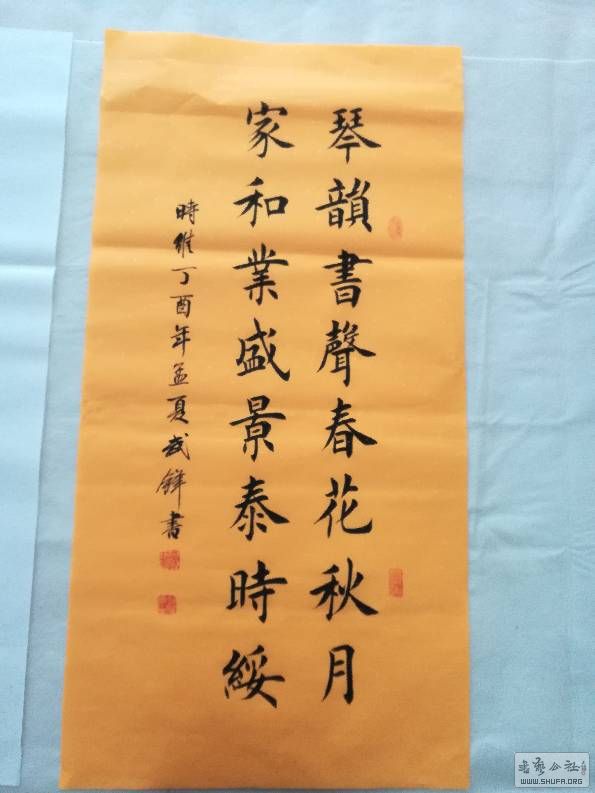 琴韻書聲春花秋月
家和業盛景泰時綏
時維丁酉年孟夏武鋒書
WWW.SHUFA.ORG